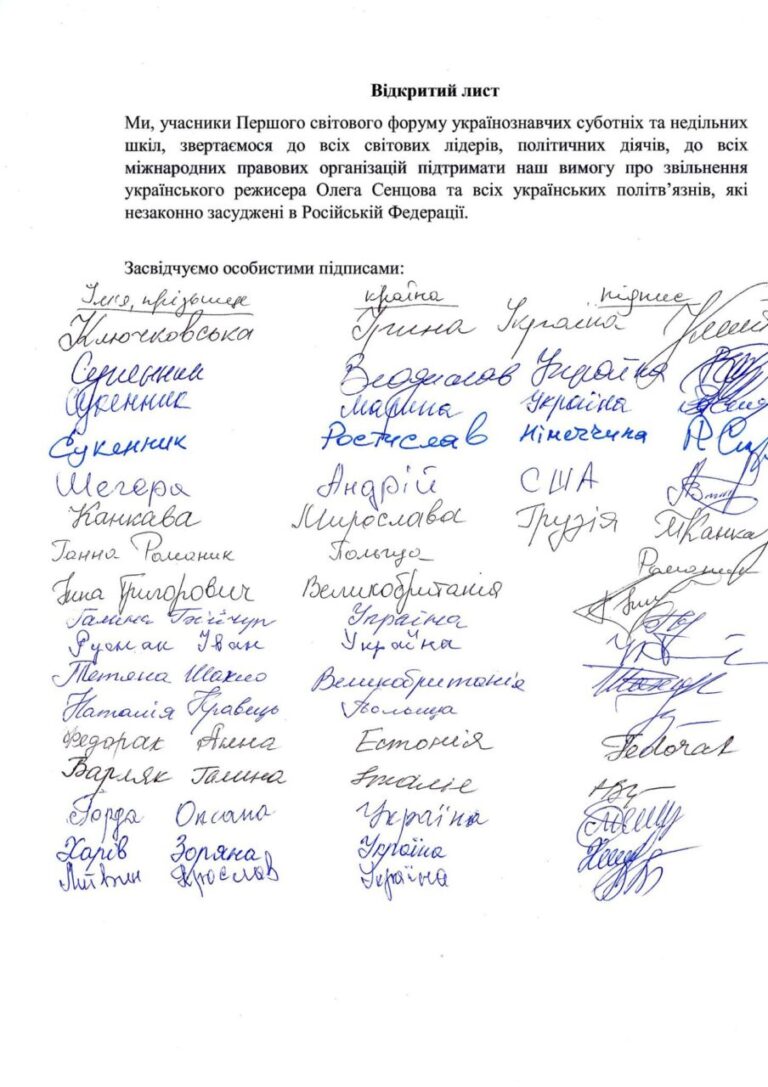 Відкритий лист
Ми, учасники Першого світового форуму українознавчих суботніх та недільних
шкіл, звертаємося до всіх світових лідерів, політичних діячів, до всіх
міжнародних правових організацій підтримати наш вимогу про звільнення
українського режисера Олега Сенцова та всіх українських політв’язнів, які
незаконно засуджені в Російській Федерації.
Засвідчуємо особистими підписами:
Імя, прізвище країна підпис
Ключковська Ірина Україна
Владислав Україна
Сукенник Марина Україна
Сукенник Ростислав Німеччина
Шегера Андрій США
Канкава Мирослава Грузія МКанка
Ганна Романик Польща Романик
Інна Григорович Великобританія
Галина Україна
Руснак Іван Україна
Тетяна Шахло Великобританія
Наталія Кравець Польща
Федорак Анна Естонія Fedorak
Варляк Галина Італіє
Горда Оксана Україна
Харів Зоряна Україна
Литвин Ярослав Україна